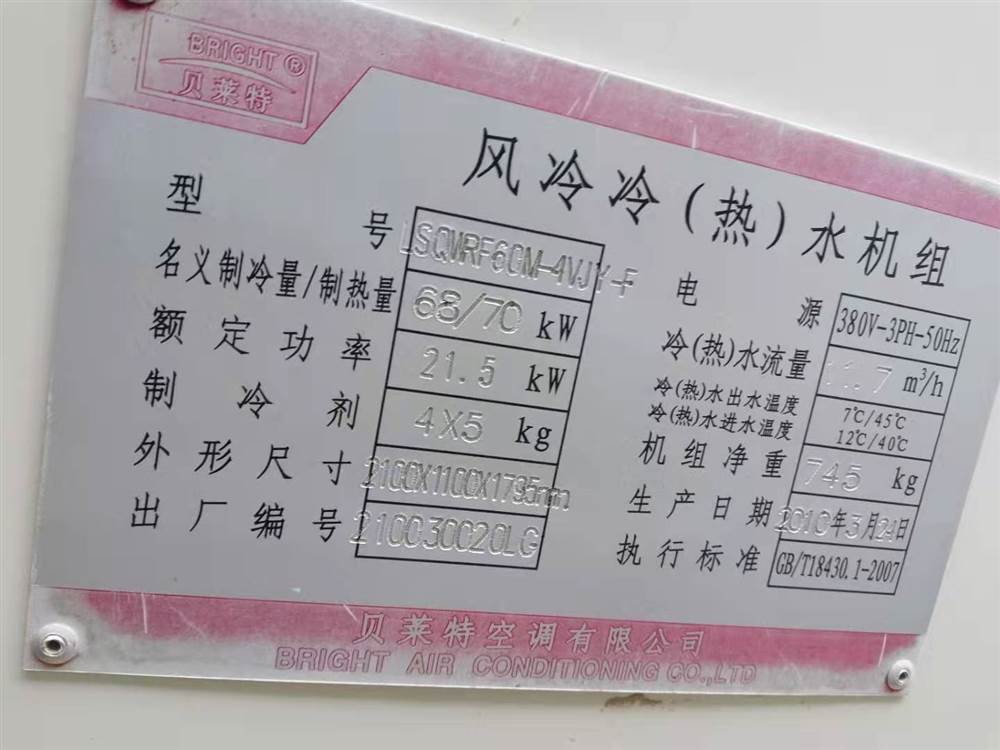 BRIGHT®
贝莱特
风冷冷(热)水机组
型号 LSQWRF60M-4VJY-F
名义制冷量/制热量 68/70 kW
额定功率 21.5 kW
制冷剂 4X5 kg
外形尺寸 2100X1100X1795mm
出厂编号 210030020LG
电源 380V-3PH-50Hz
冷(热)水流量 11.7 m³/h
冷(热)水出水温度 7℃/45℃
冷(热)水进水温度 12℃/40℃
机组净重 745 kg
生产日期 2010年3月24日
执行标准 GB/T18430.1-2007
贝莱特空调有限公司
BRIGHT AIR CONDITIONING CO.,LTD